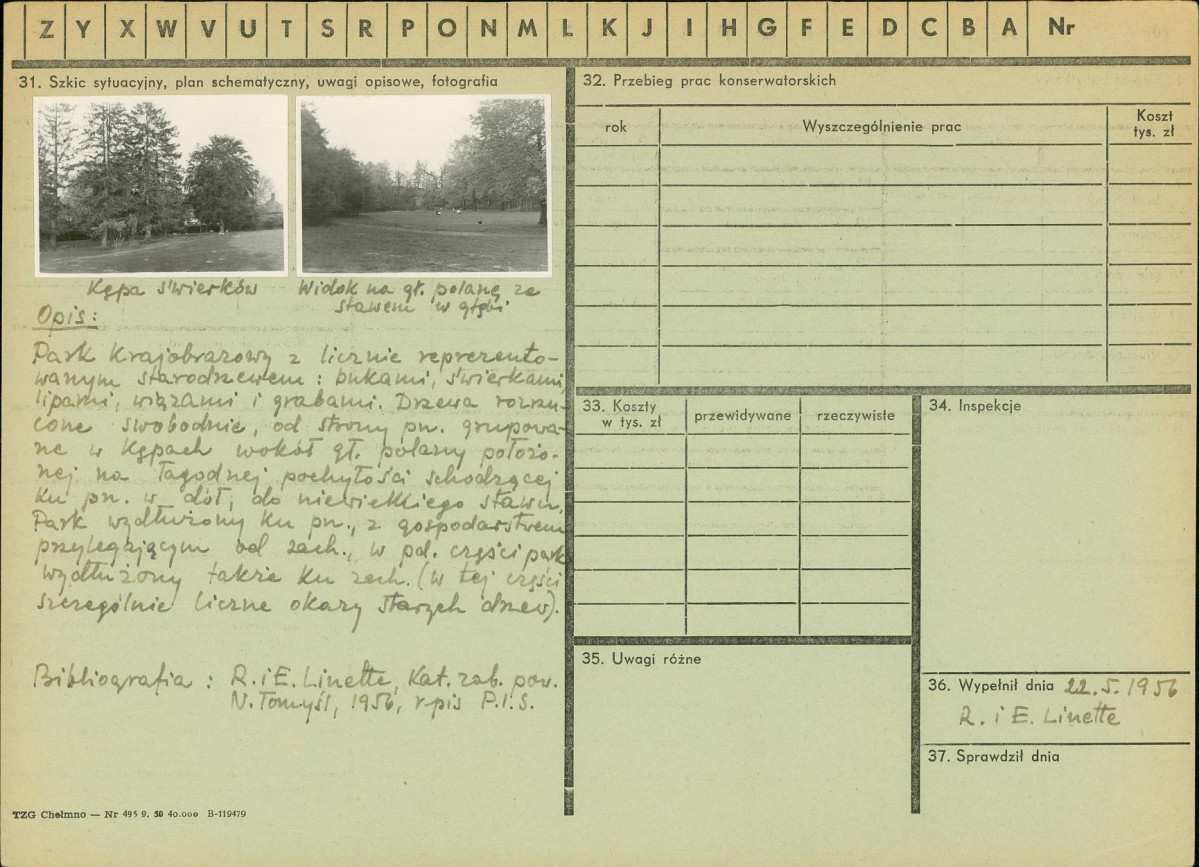 Z Y X W V U T S R P O N M L K J I H G F E D C B A Nr
31. Szkic sytuacyjny, plan schematyczny, uwagi opisowe, fotografia
Kępa świerków
Widok na gł. polanę ze
stawem w głębi
Opis:
Park krajobrazowy z licznie reprezento-
wanym starodrzewem: bukami, świerkami,
lipami, wiązami i grabami. Drzewa rozrzu-
cone swobodnie, od strony pn. grupowa-
ne w kępach wokół gł. polany położo-
nej na łagodnej pochyłości schodzącej
ku pn. w dół, do niewielkiego stawu.
Park wydłużony ku pn., z gospodarstwem
przylegającym od zach., w pd. części park
wydłużony także ku zach. (w tej części
szczególnie liczne okazy starych drzew).
Bibliografia : R. i E. Linette, Kat. zab. pow.
N. Tomyśl, 1956, r-pis P.I.S.
TZG Chełmno — Nr 495 9. 50 40.000 B-119479
32. Przebieg prac konserwatorskich
rok
Wyszczególnienie prac
Koszt
tys. zł
33. Koszty
w tys. zł
przewidywane
rzeczywiste
34. Inspekcje
35. Uwagi różne
36. Wypełnił dnia 22.5.1956
R. i E. Linette
37. Sprawdził dnia